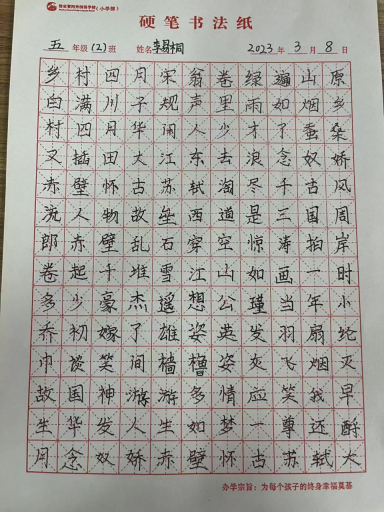 硬笔书法纸
五 年级 (2) 班 姓名 李易桐 2023 年 3 月 8 日
乡村四月宋翁卷绿遍山原
白满川子规声里雨如烟乡
村四月华闲人少才了蚕桑
又插田大江东去浪念奴娇
赤壁怀古苏轼淘尽千古风
流人物故垒西道是三国周
郎赤壁乱石穿空惊涛拍岸
卷起千堆雪江山如画一时
多少豪杰遥想公瑾当年小
乔初嫁了雄姿英发羽扇纶
巾谈笑间樯橹姿灰飞烟灭
故国神游游多情应笑我早
生华发人生如梦一尊还酹
月念奴娇赤壁怀古苏轼大
办学宗旨：为每个孩子的终身幸福奠基